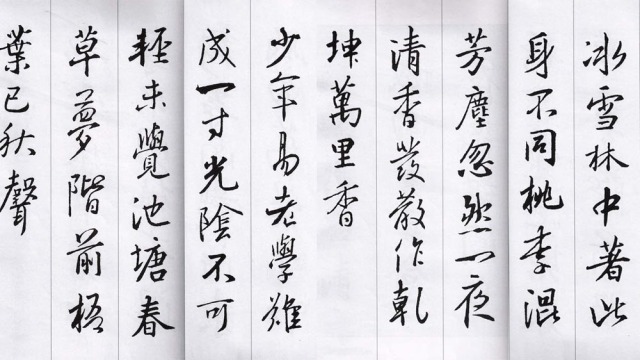 冰雪林中著此
身不同桃李混
芳塵忽然一夜
清香發散作乾
坤萬里香
少年易老學難
成一寸光陰不可
輕未覺池塘春
草夢階前梧
葉已秋聲